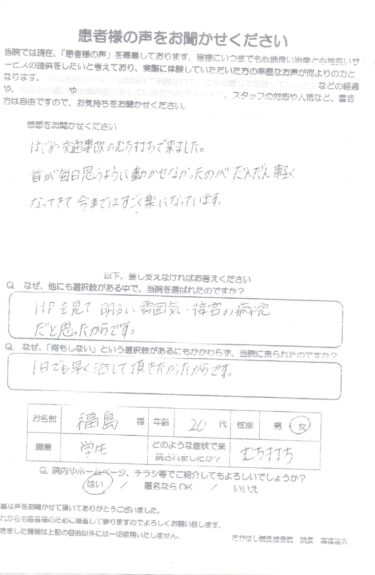 患者様の声をお聞かせください
当院では現在、「患者様の声」を募集しております。皆様にいつまでも心地良い治療と心地良いサ
ービスの提供をしたいと考えており、実際に体験していただいた方の率直なお声が何よりの力と
なります。
などの経過
や、
や
、スタッフの対応や人柄など、書き
方は自由ですので、お気持ちをお聞かせください。
感想をお聞かせください
はじめ交通事故のむちうちで来ました。
首が毎日思うように動かせなかったのが だんだん軽く
なってきて 今まではすごく楽になっています。
以下、差し支えなければお答えください
Q なぜ、他にも選択肢がある中で、当院を選ばれたのですか?
HPを見て 明るい雰囲気・
だと思ったからです。
Q なぜ、「何もしない」という選択肢があるにもかかわらず、当院に来られたのですか?
1日でも早く治して頂きたかったからです。
お名前 福島 様 年齢 20 代 性別 男 女
職業 学生 どのような症状で来
院されましたか? むちうち
Q 院内やホームページ、チラシ等でご紹介してもよろしいでしょうか?
はい / 匿名ならOK / いいえ
重な声をお聞かせて頂いてありがとうございました。
れからも患者様のために精進して参りますのでよろしくお願い致します。
きました情報は上記の目的以外には一切使用いたしません。
鍼灸接骨院 院長